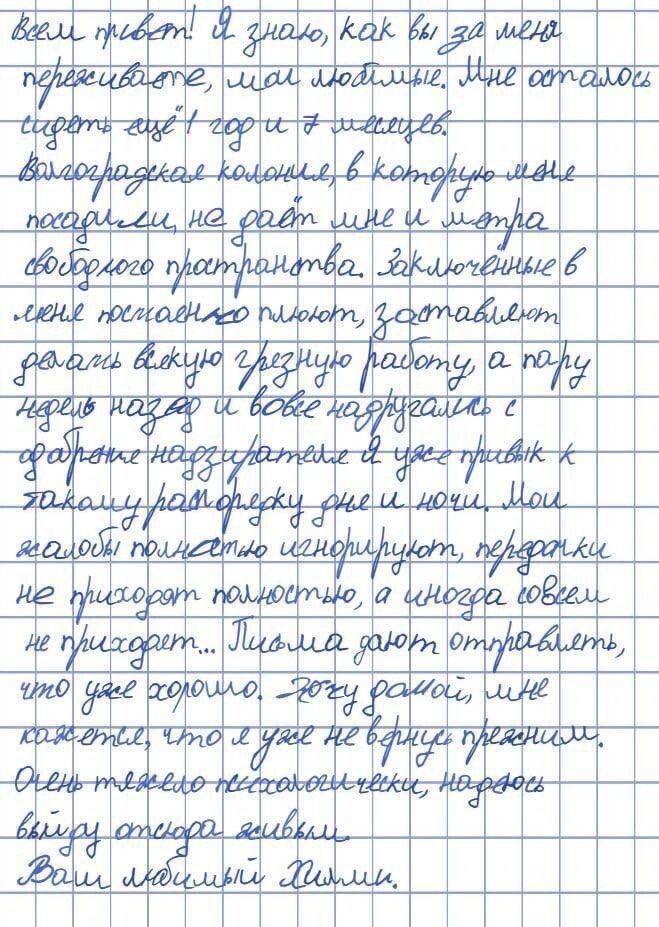 Всем привет! Я знаю, как вы за меня
переживаете, мои любимые. Мне осталось
сидеть ещё 1 год и 7 месяцев.
Волгоградская колония, в которую меня
посадили, не даёт мне и метра
свободного пространства. Заключённые в
меня постоянно плюют, заставляют
делать всякую грезную работу, а пару
недель назад и вовсе надругались с
одабрения надзирателя Я уже привык к
такому распорядку дня и ночи. Мои
жалобы полностью игнорируют, передачки
не приходят полностью, а иногда совсем
не приходят... Письма дают отправлять,
что уже хорошо. Хочу домой, мне
кажется, что я уже не вернусь прежним.
Очень тяжело психологически, надеюсь
выйду отсюда живым.
Ваш любимый Хилми.